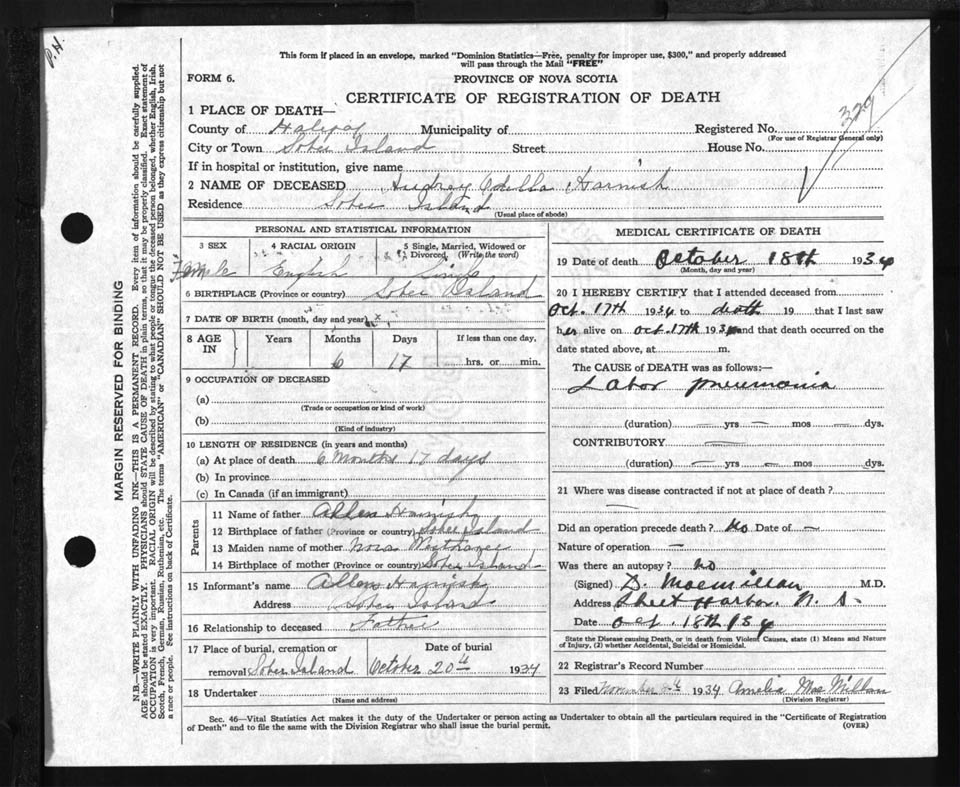 P.H.
This form if placed in an envelope, marked "Dominion Statistics—Free, penalty for improper use, $300," and properly addressed
will pass through the Mail "FREE"
FORM 6. PROVINCE OF NOVA SCOTIA
CERTIFICATE OF REGISTRATION OF DEATH
329
1 PLACE OF DEATH—
County of Halifax Municipality of Registered No.
(For use of Registrar General only)
City or Town Sober Island Street House No.
If in hospital or institution, give name
2 NAME OF DECEASED Audrey Odella Harnish
Residence Sober Island
(Usual place of abode)
MARGIN RESERVED FOR BINDING
N.B.—WRITE PLAINLY WITH UNFADING INK—THIS IS A PERMANENT RECORD. Every item of information should be carefully supplied.
AGE should be stated EXACTLY. PHYSICIANS should STATE CAUSE OF DEATH in plain terms, so that it may be properly classified. Exact statement of
OCCUPATION is very important. RACIAL ORIGIN will be described by stating to what people or tongue the deceased person belonged, whether English, Irish,
Scotch, French, German, Russian, Ruthenian, etc. The terms "AMERICAN" or "CANADIAN" SHOULD NOT BE USED as they express citizenship but not
a race or people. See instructions on back of Certificate.
PERSONAL AND STATISTICAL INFORMATION
3 SEX 4 RACIAL ORIGIN 5 Single, Married, Widowed or
Divorced, (Write the word)
Female English Single
6 BIRTHPLACE (Province or country) Sober Island
7 DATE OF BIRTH (month, day and year) x
8 AGE IN Years Months Days If less than one day,
6 17 hrs. or min.
9 OCCUPATION OF DECEASED
(a)
(Trade or occupation or kind of work)
(b)
(Kind of industry)
10 LENGTH OF RESIDENCE (in years and months)
(a) At place of death 6 Months 17 days
(b) In province
(c) In Canada (if an immigrant)
Parents
11 Name of father Allen Harnish
12 Birthplace of father (Province or country) Sober Island
13 Maiden name of mother Nora
14 Birthplace of mother (Province or country) Sober Island
15 Informant's name Allen Harnish
Address Sober Island
16 Relationship to deceased Father
17 Place of burial, cremation or Date of burial
removal Sober Island October 20th 1934
18 Undertaker
(Name and address)
MEDICAL CERTIFICATE OF DEATH
19 Date of death October 18th 1934
(Month, day and year)
20 I HEREBY CERTIFY that I attended deceased from
Oct. 17th 1934 to death 19 that I last saw
her alive on Oct. 17th 1934 and that death occurred on the
date stated above, at m.
The CAUSE of DEATH was as follows:—
Labor pneumonia
(duration) — yrs — mos — dys.
CONTRIBUTORY —
(duration) — yrs — mos — dys.
21 Where was disease contracted if not at place of death?
—
Did an operation precede death? No Date of —
Nature of operation —
Was there an autopsy? No
(Signed) D. Macmillan M.D.
Address Sheet Harbor. N. S.
Date Oct. 18th 1934
State the Disease causing Death, or in death from Violent Causes, state (1) Means and Nature
of Injury, (2) whether Accidental, Suicidal or Homicidal.
22 Registrar's Record Number
23 Filed November 1934 Amelia Mac Millan
(Division Registrar)
Sec. 46—Vital Statistics Act makes it the duty of the Undertaker or person acting as Undertaker to obtain all the particulars required in the "Certificate of Registration
of Death" and to file the same with the Division Registrar who shall issue the burial permit. (OVER)